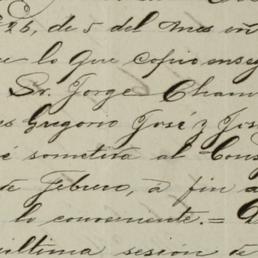 26, de 5 del mes
lo que copio
Sr. Jorge Cham
Gregorio José y Jos
sometiva al Cons
de Febrero, á fin
lo conveniente. =
última sesión de